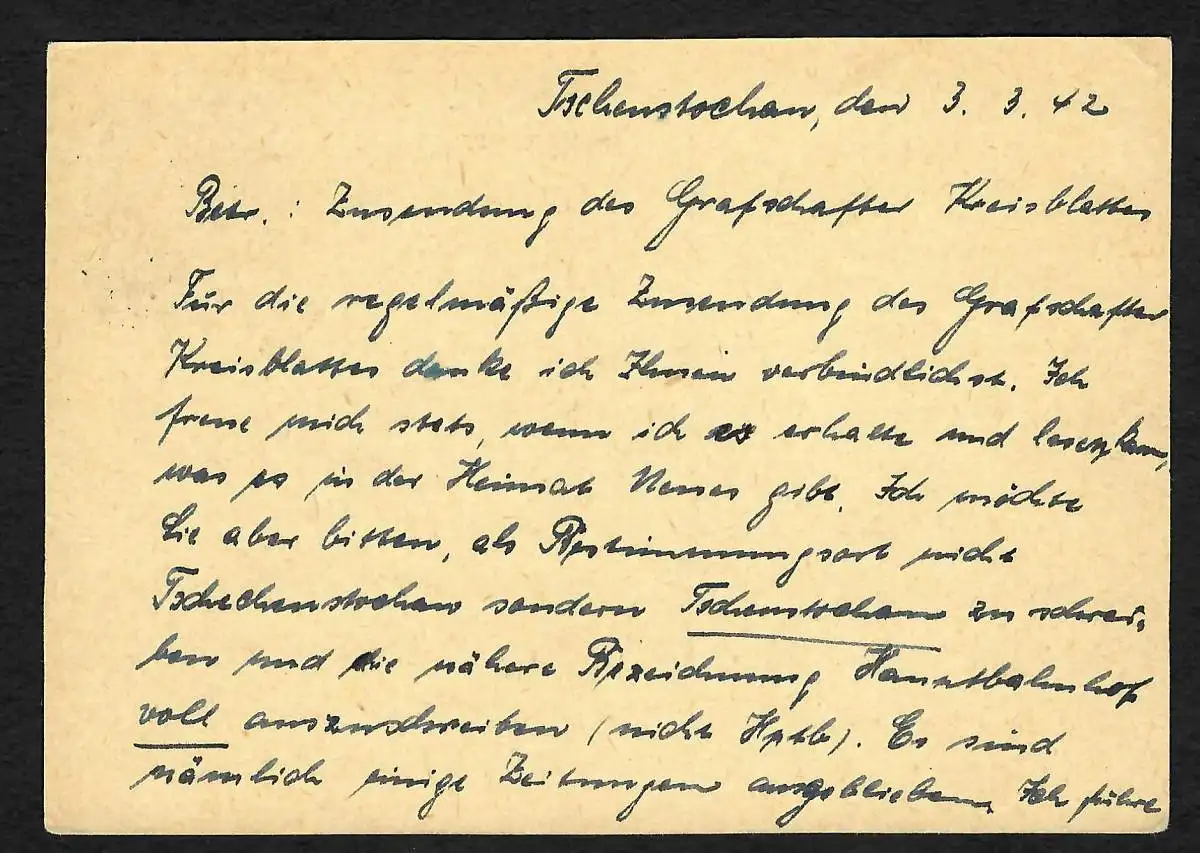 Tschenstochau, den 3. 3. 42
Betr. : Zusendung des Grafschafter Kreisblattes
Für die regelmäßige Zusendung des Grafschafter
Kreisblattes danke ich Ihnen verbindlichst. Ich
freue mich stets, wenn ich es erhalte und lesen kann,
was es in der Heimat Neues gibt. Ich möchte
Sie aber bitten, als Bestimmungsort nicht
Tschechenstochau sondern Tschenstochau zu schrei-
ben und die nähere Bezeichnung Hauptbahnhof
voll auszuschreiben (nicht Hptb). Es sind
nämlich einige Zeitungen ausgeblieben. Ich führe